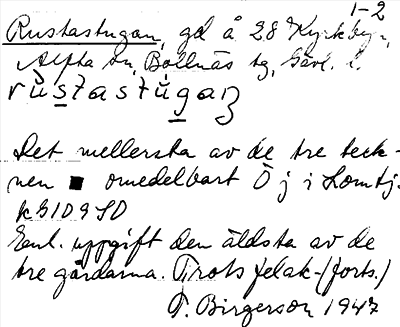 1-2
Rustastugan, gd å 28 Kyrkbyn,
Alfta sn, Bollnäs tg, Gävl. l.
rùstastúgaṇ
Det mellersta av de tre teck-
nen ■ omedelbart Ö j i Lomtj.
kG1D9SD
Enl. uppgift den äldsta av de
tre gårdarna. Trots felak-(forts.)
T. Birgerson 1947